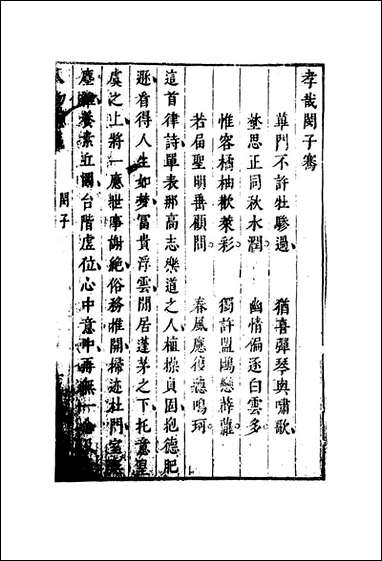 孝哉閔子騫
蓽門不許壯驂過　猶喜彈琴與嘯歌
埜思正同秋水濶　幽情偏逐白雲多
惟容橘柚歡萊彩　獨許盟鷗戀薜蘿
若屆聖明垂顧問　春風應復聽鳴珂
這首律詩單表那高志樂道之人植操貞固抱德肥
遯看得人生如夢冨貴浮雲閒居蓬茅之下托意皇
虞之上將一應世事謝絶俗務推開掃迹杜門室
塵雖養素近圖台階虛位心中意中再無一
閔子